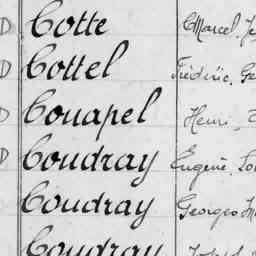 D Cotte Marcel, Je
D Cottel Frédéric, Ge
D Couapel Henri,
D Coudray Eugène, Lo
Coudray Georges
Coudray Joseph